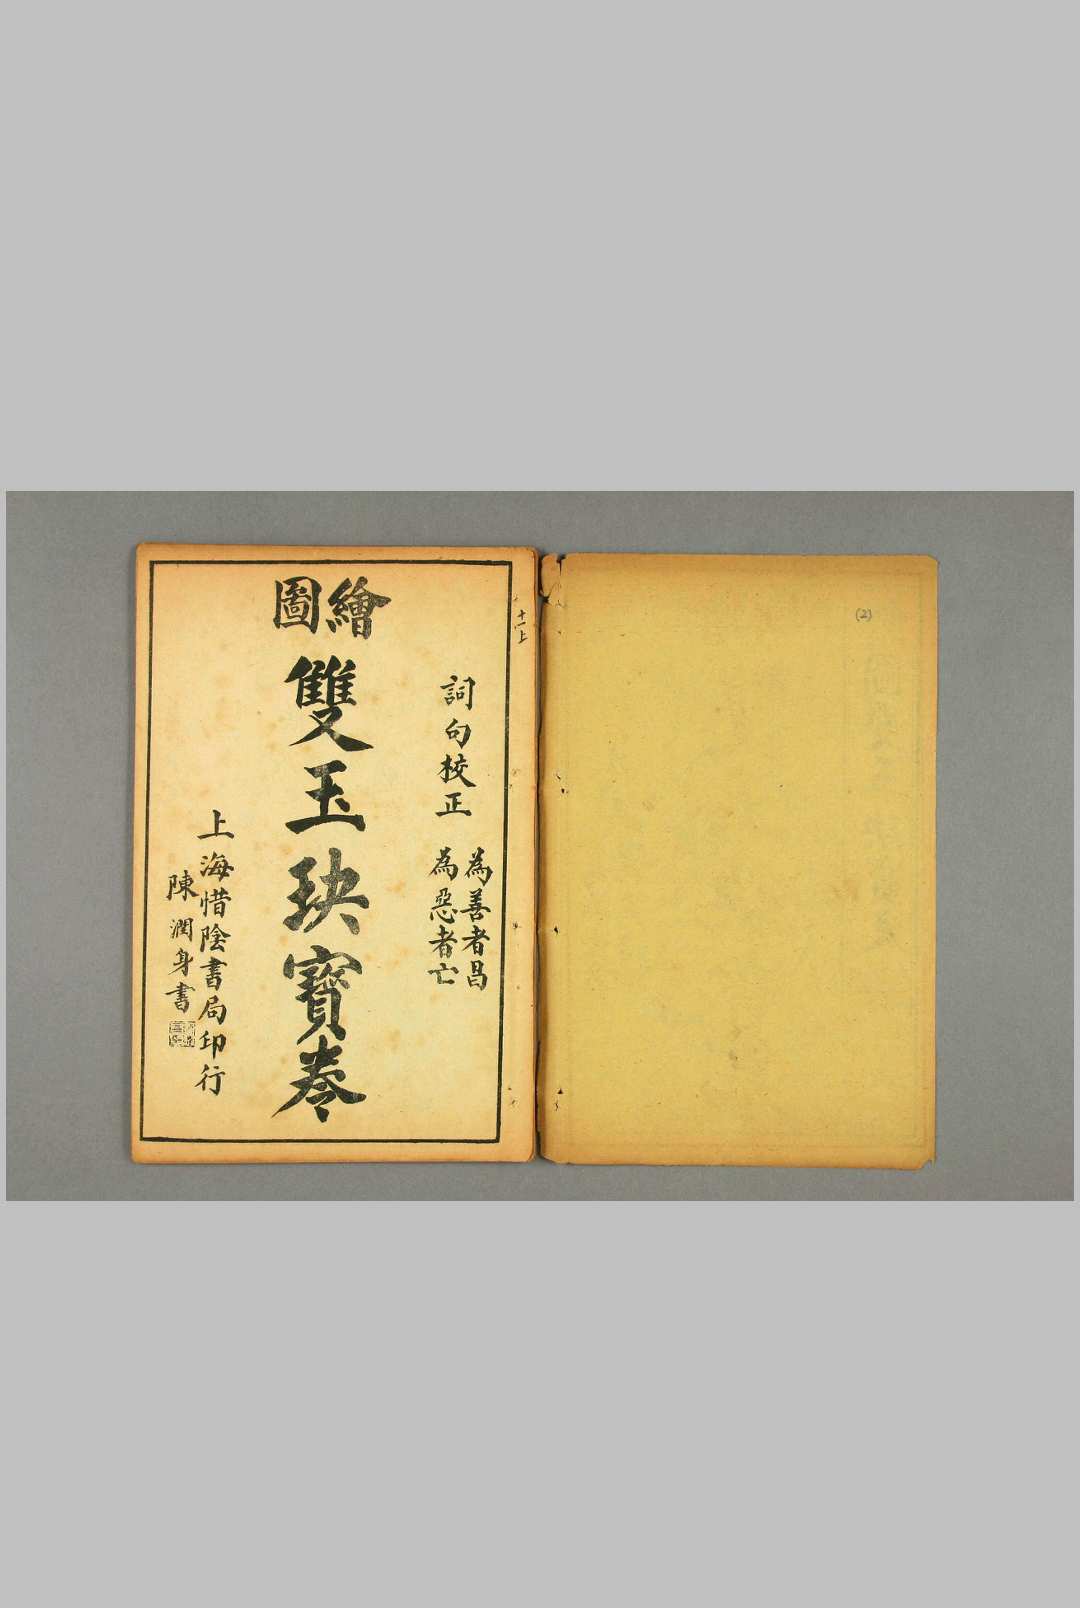 (2)
十一上
繪圖
詞句校正
為善者昌
為惡者亡
雙玉玦寶卷
上海惜陰書局印行
陳潤身書